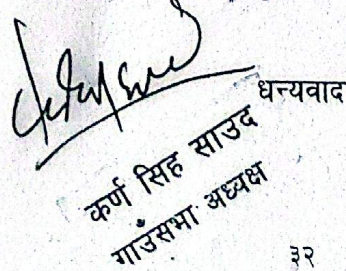 धन्यवाद
कर्ण सिह साउद
गाउँसभा अध्यक्ष
३२